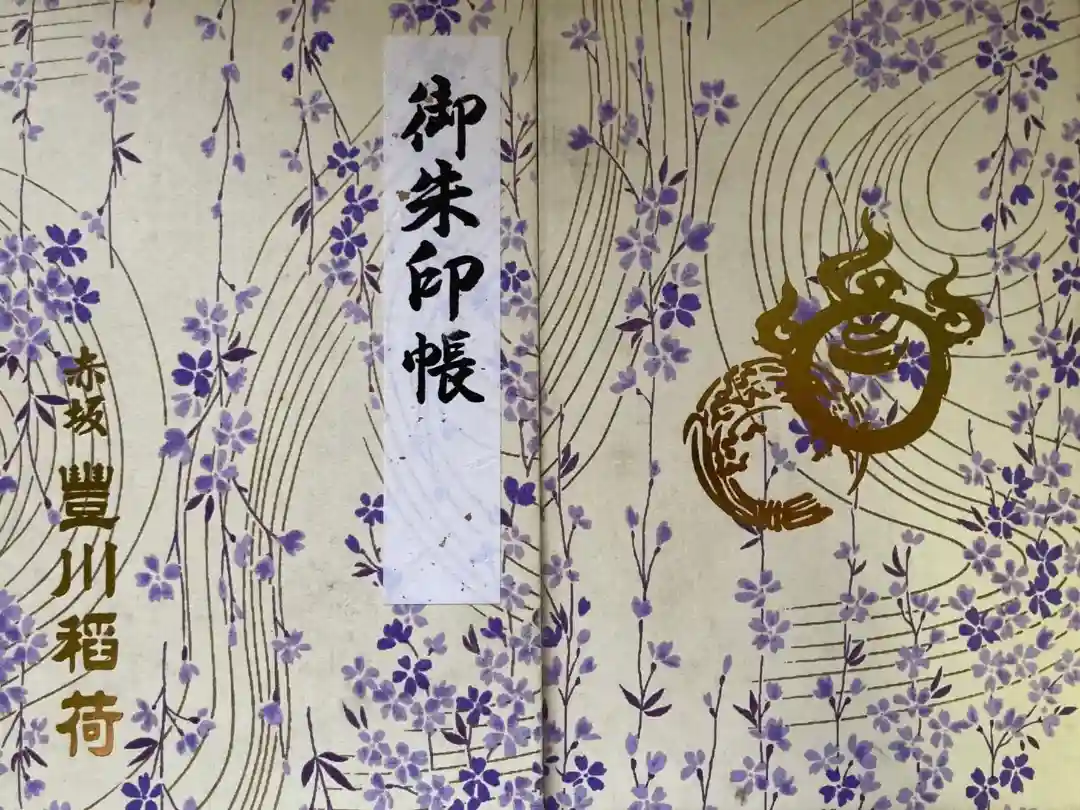 御朱印帳
赤坂 豐川稲荷